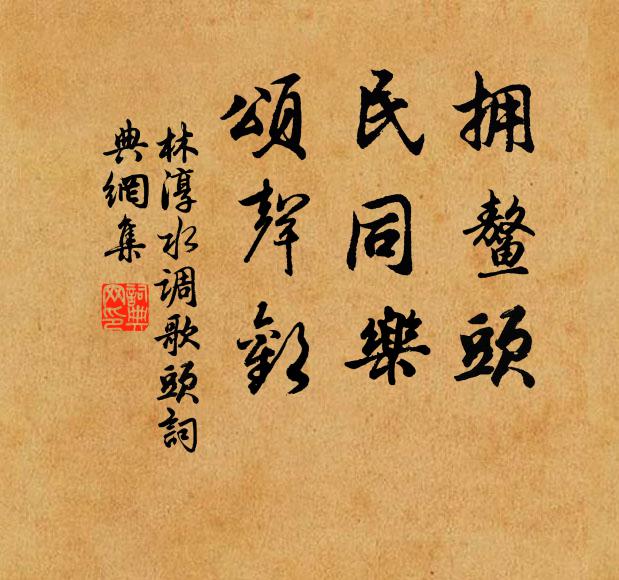 拥鳌頭
民同樂
頌聲歡
林淳水调歌頭詞
典網集
詞典
网印